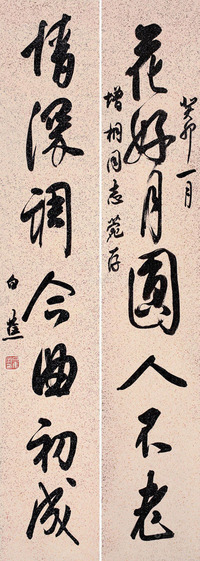 花好月圆人不老
癸卯一月
增桐同志苑存
情深调合曲初成
白蕉